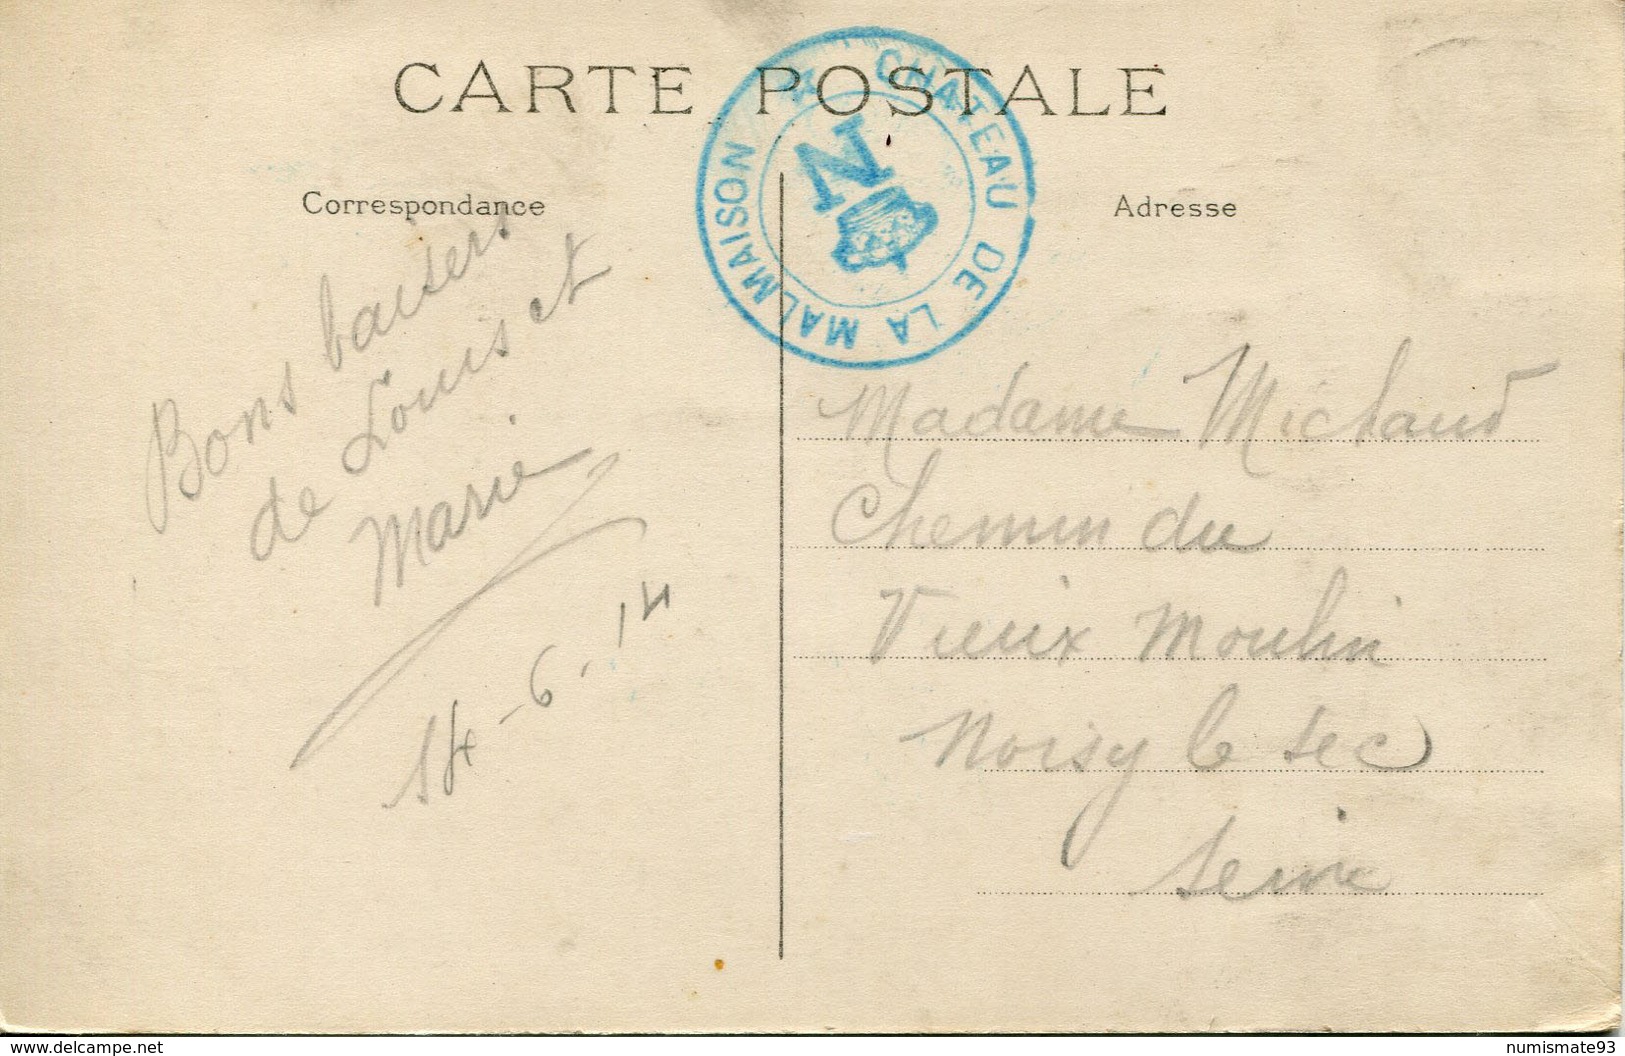 CARTE POSTALE
CHATEAU DE LA MALMAISON
N
Correspondance
Bons baisers
de Louis et
Marie
14-6.14
Adresse
Madame Michaud
Chemin du
Vieux Moulin
Noisy le sec
Seine
www.delcampe.net
numismate93